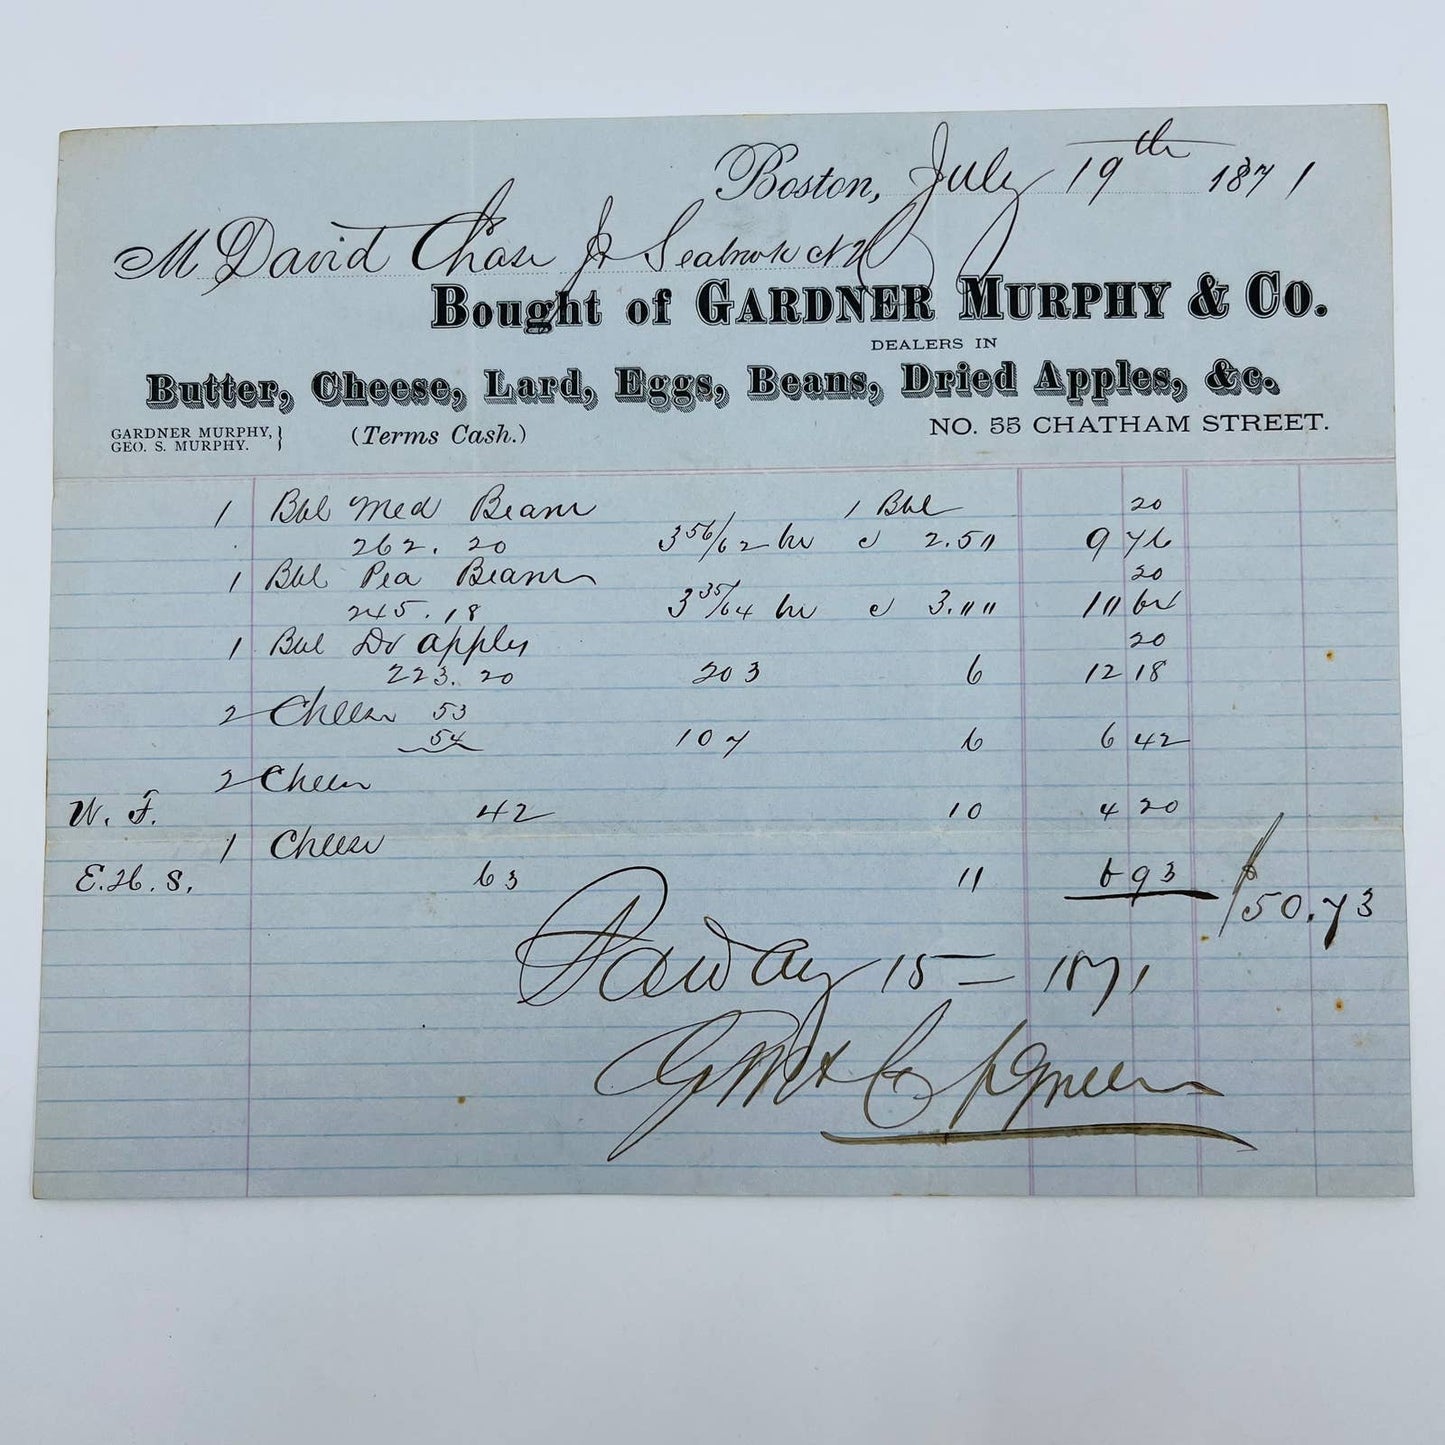 Boston, July 19th 1871
M David Chase Jr Seabrook N H
Bought of GARDNER MURPHY & CO.
DEALERS IN
Butter, Cheese, Lard, Eggs, Beans, Dried Apples, &c.
GARDNER MURPHY, } (Terms Cash.) NO. 55 CHATHAM STREET.
GEO. S. MURPHY.
1 Bbl Med Beans 1 Bbl 20
262. 20 3 56/62 bu @ 2.50 9 76
1 Bbl Pea Beans 20
245. 18 3 35/64 bu @ 3.00 10 64
1 Bbl Dr apples 20
223. 20 203 6 12 18
2 Cheese 53
54 107 6 6 42
2 Cheese
W. F. 42 10 4 20
1 Cheese
E. H. S. 63 11 6 93 $50.73
15 1871
G M & Co